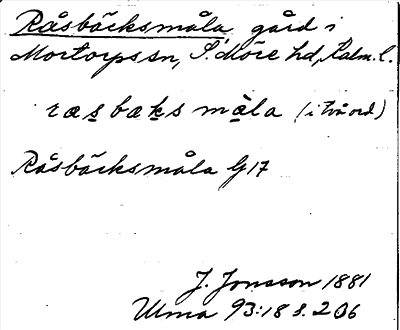 Råsbäcksmåla, gård i
Mortorps sn, S. Möre hd, Kalm. l.
ræsbæks måla (i två ord)
Råsbäcksmåla G 17
J. Jonsson 1881
Ulma 93:18 s. 206